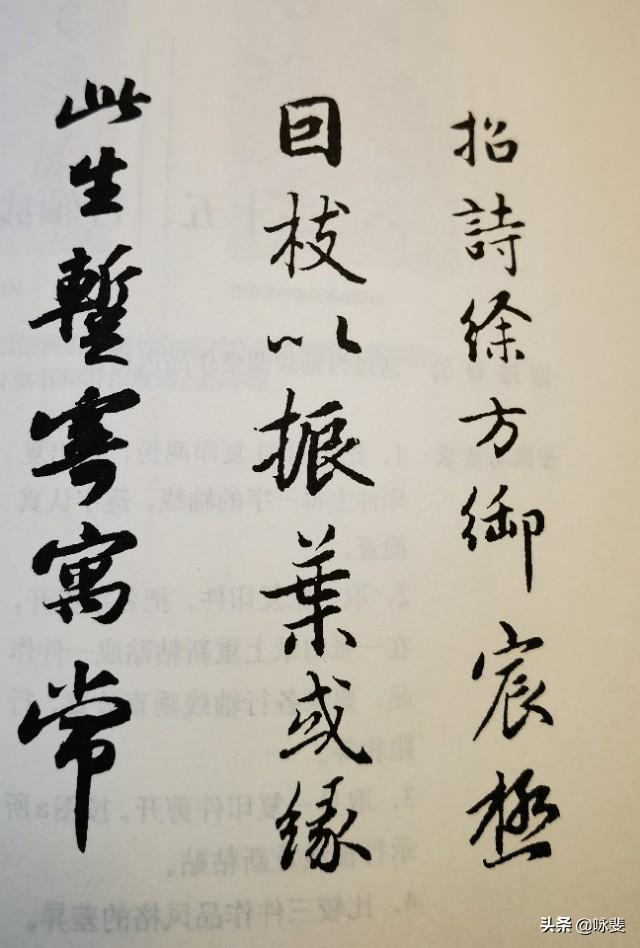 招詩徐方御宸極
因枝以振葉或緣
此生暫寄寓常
头条 @咏斐